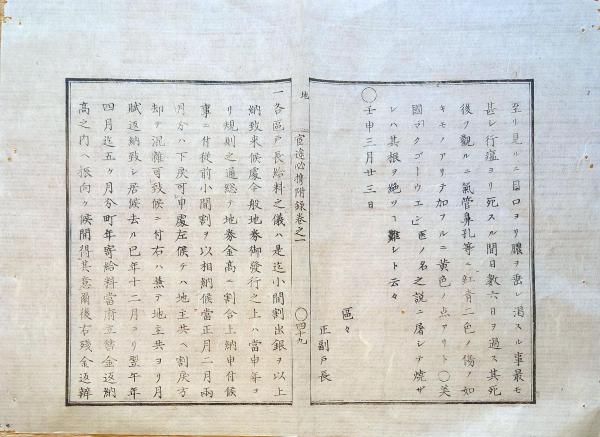 至リ見ルニ目口ヨリ膿ヲ垂レ渇スル事最モ
甚シ行瘟ヨリ死スル間日數六日ヲ過ス其死
後ヲ觀ルニ氣管鼻孔等ニ紅青二色ノ傷ノ如
キモノアリテ加フルニ黄色ノ点アリト〇英
國マクゴーウエン醫ノ名之説ニ屠シテ燒ザ
レハ其根ヲ絶ツヿ難シト云々
〇
壬申三月廿三日
區々
正副戸長
地
官途必携附録卷之一
〇四十九
一各區戸長給料之儀ハ是迄小間割出銀ヲ以上
納致來候處今般地券御發行之上ハ當申年ヨ
リ規則之通總テ地券金高ニ割合上納申付候
事ニ付從前小間割ヲ以相納候當正月二月兩
月分ハ下戻可申處左候テハ地主共ヘ割戻方
却テ混雜可致候ニ付右ハ兼テ地主共ヨリ月
賦返納致シ居候去ル巳年十二月ヨリ翌午年
四月迄五ヶ月分町年寄給料當府立替金返納
高之内ヘ振向ケ候間得其意爾後右殘金返辨